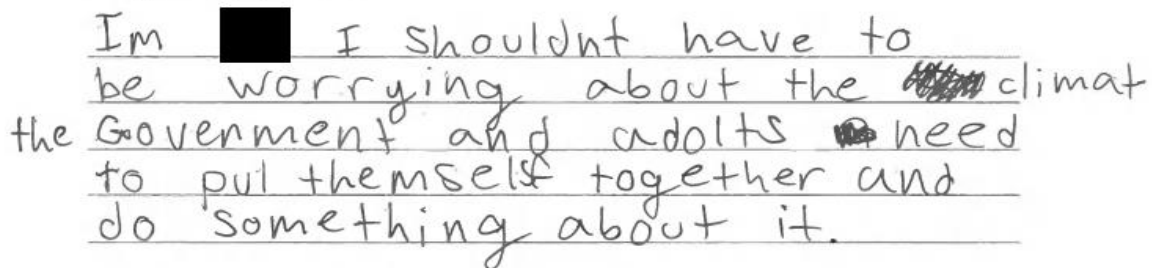 Im I shouldnt have to
be worrying about the climat
the Govenment and adolts need
to pul themself together and
do something about it.